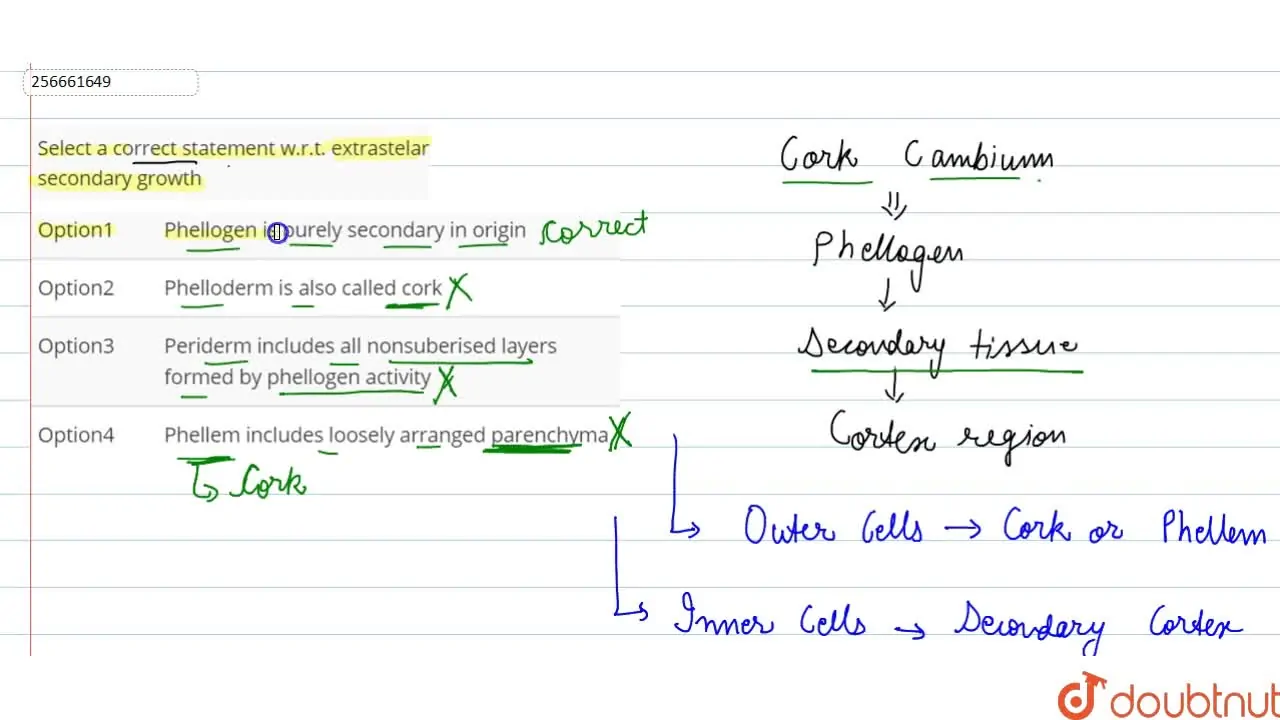 256661649
Select a correct statement w.r.t. extrastelar
secondary growth
Option1 Phellogen is purely secondary in origin correct
Option2 Phelloderm is also called cork X
Option3 Periderm includes all nonsuberised layers
formed by phellogen activity X
Option4 Phellem includes loosely arranged parenchyma X
Cork
Cork Cambium
Phellogen
Secondary tissue
Cortex region
Outer Cells → Cork or Phellem
Inner Cells → Secondary Cortex
doubtnut